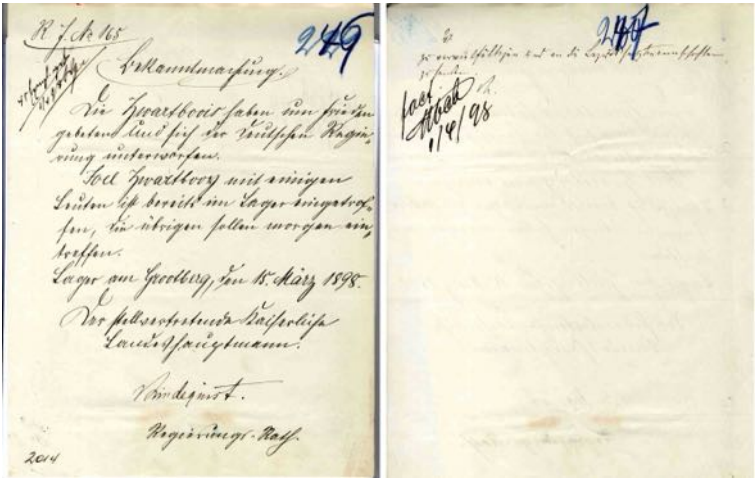 R. J. № 165
249
Bekanntmachung.
Die Zwartboois haben um Frieden
gebeten und sich der Deutschen Regie-
rung unterworfen.
Joel Zwartbooy mit einigen
Leuten ist bereits im Lager eingetrof-
fen, die übrigen sollen morgen ein-
treffen.
Lager am Grootberg, den 15. März 1898.
Der stellvertretende Kaiserliche
Landeshauptmann.
Lindequist.
Regierungs-Rath.
2014
zu vervielfältigen und an die
zu senden
1/4/98